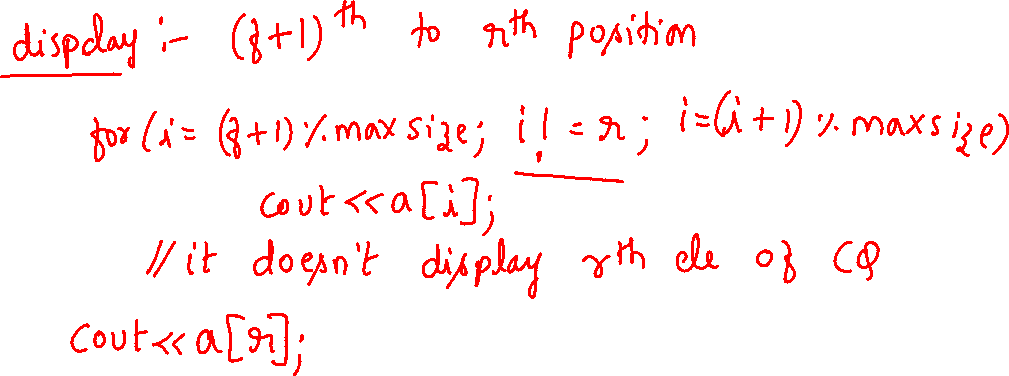 display :- (f+1)th to rth position
for (i = (f+1) % maxsize; i != r; i=(i+1) % maxsize)
cout<<a[i];
// it doesn't display rth ele of CQ
cout<<a[r];